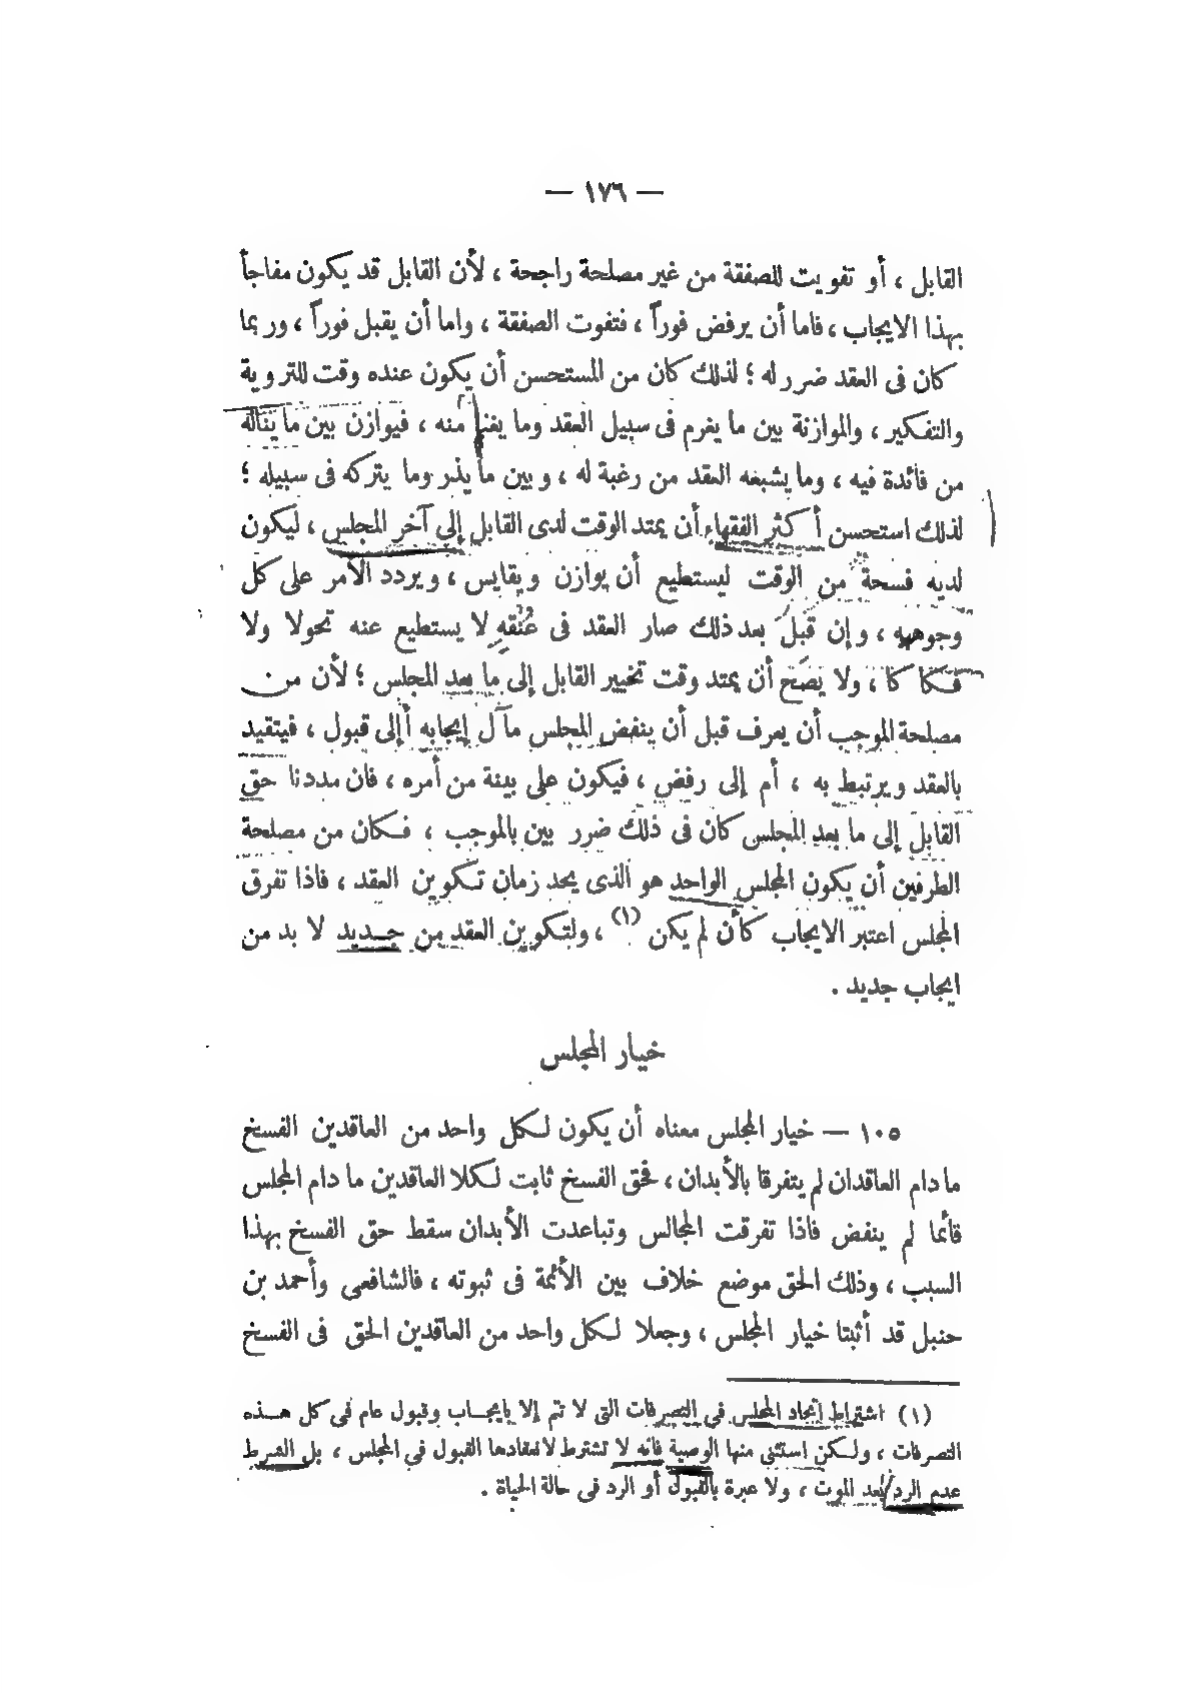 — ١٧٦ —
القابل ، أو تفويت للصفقة من غير مصلحة راجحة ، لأن القابل قد يكون مفاجأ
بهذا الايجاب ، فاما أن يرفض فوراً ، فتفوت الصفقة ، واما أن يقبل فوراً ، وربما
كان فى العقد ضرر له ؛ لذلك كان من المستحسن أن يكون عنده وقت للتروية
والتفكير ، والموازنة بين ما يغرم فى سبيل العقد وما يغنم منه ، فيوازن بين ما يناله
من فائدة فيه ، وما يشبعه العقد من رغبة له ، وبين ما يذر وما يتركه فى سبيله ؛
لذلك استحسن أكثر الفقهاء أن يمتد الوقت لدى القابل إلى آخر المجلس ، ليكون
لديه فسحة من الوقت ليستطيع أن يوازن ويقايس ، ويردد الأمر على كل
وجوهه ، وإن قبل بعد ذلك صار العقد فى عُنُقِهِ لا يستطيع عنه تحولا ولا
فكاكا ، ولا يصح أن يمتد وقت تخيير القابل إلى ما بعد المجلس ؛ لأن من
مصلحة الموجب أن يعرف قبل أن ينفض المجلس مآل إيجابه أإلى قبول ، فيتقيد
بالعقد ويرتبط به ، أم إلى رفض ، فيكون على بينة من أمره ، فان مددنا حق
القابل إلى ما بعد المجلس كان فى ذلك ضرر بين بالموجب ، فكان من مصلحة
الطرفين أن يكون المجلس الواحد هو الذى يحد زمان تكوين العقد ، فاذا تفرق
المجلس اعتبر الايجاب كأن لم يكن (١) ، ولتكوين العقد من جديد لا بد من
ايجاب جديد .
خيار المجلس
١٠٥ — خيار المجلس معناه أن يكون لكل واحد من العاقدين الفسخ
ما دام العاقدان لم يتفرقا بالأبدان ، فحق الفسخ ثابت لكلا العاقدين ما دام المجلس
قائما لم ينفض فاذا تفرقت المجالس وتباعدت الأبدان سقط حق الفسخ بهذا
السبب ، وذلك الحق موضع خلاف بين الأئمة فى ثبوته ، فالشافعى وأحمد بن
حنبل قد أثبتا خيار المجلس ، وجعلا لكل واحد من العاقدين الحق فى الفسخ
(١) اشتراط اتحاد المجلس فى التصرفات التى لا تتم إلا بايجاب وقبول عام فى كل هذه
التصرفات ، ولكن استثنى منها الوصية فانه لا تشترط لانعقادها القبول فى المجلس ، بل الشرط
عدم الرد بعد الموت ، ولا عبرة بالقبول أو الرد فى حالة الحياة .